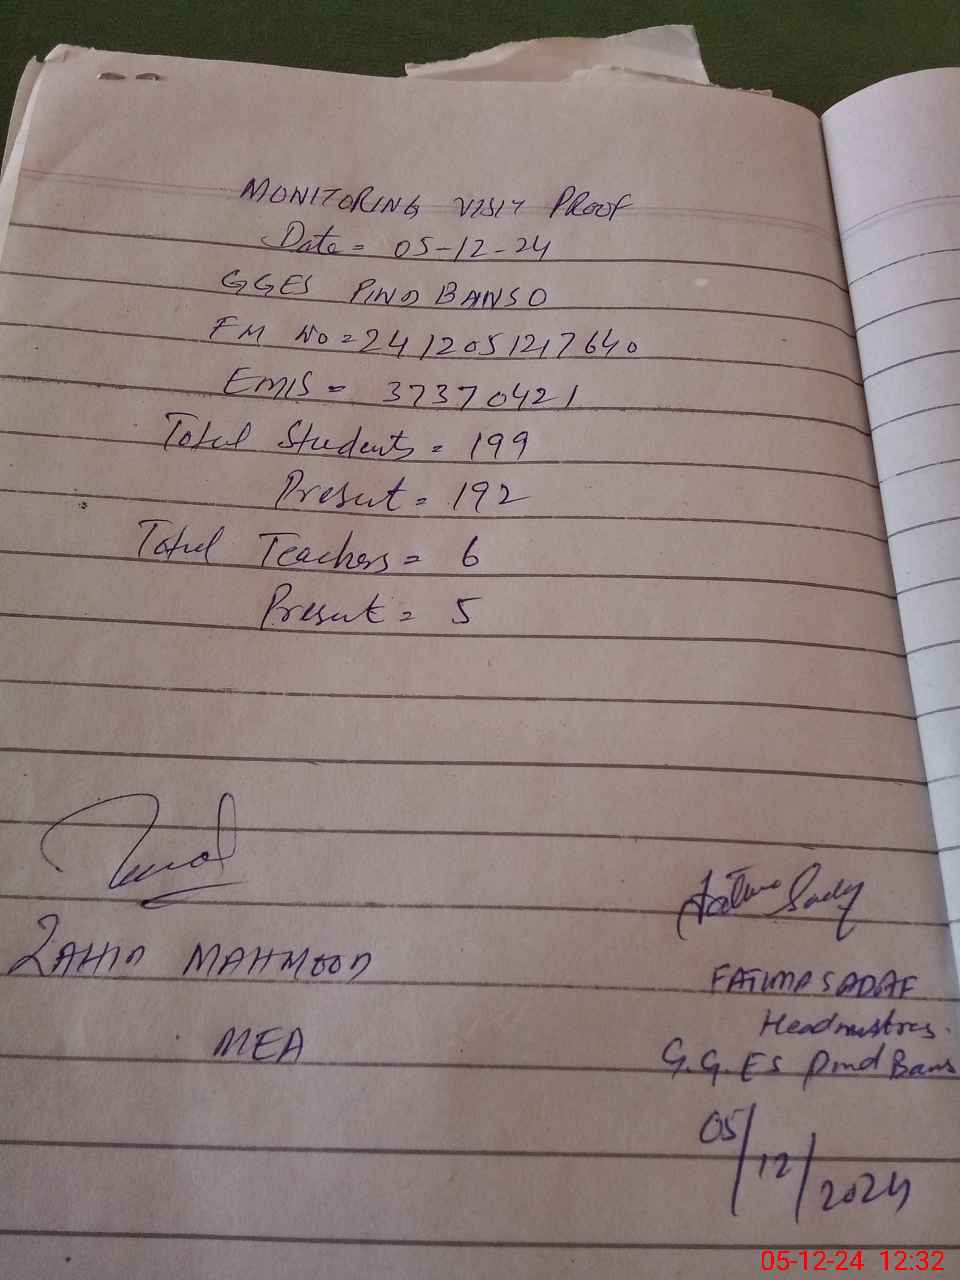 MONITORING VISIT PROOF
Date = 05-12-24
GGES PIND BANSO
FM No = 2412051217640
EMIS = 37370421
Total Students = 199
Present = 192
Total Teachers = 6
Present = 5
ZAHID MAHMOOD
MEA
Fatima Sadaf
FATIMA SADAF
Headmistres.
G.G.ES Pind Bans
05/12/2024
05-12-24 12:32